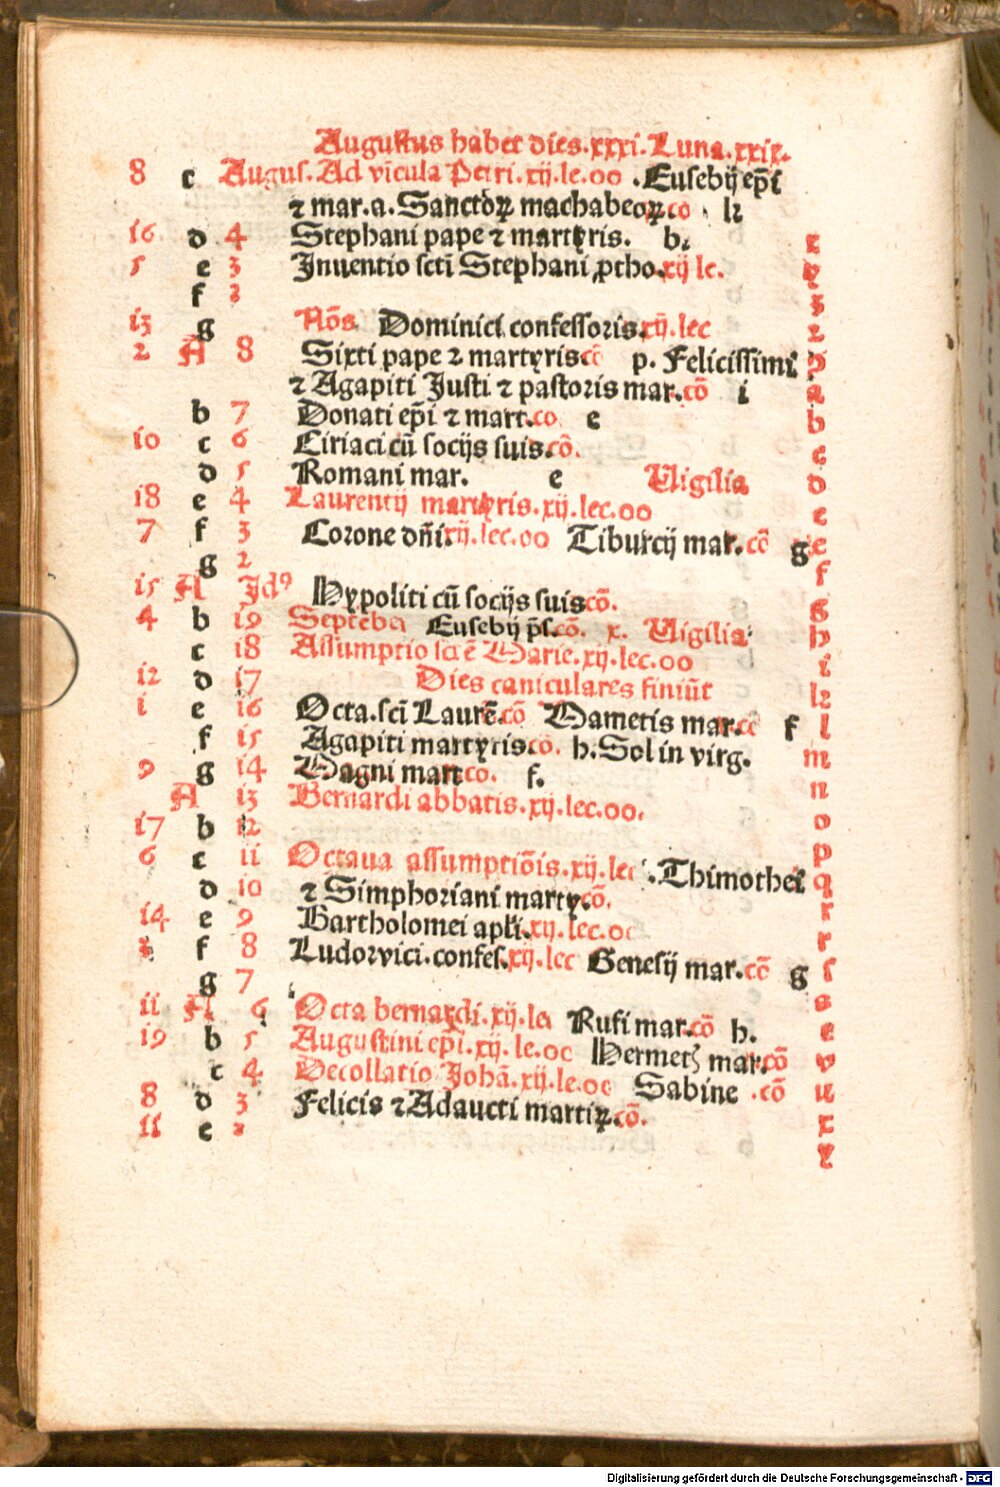 Augustus habet dies.xxxi.Luna.xxix.
8 c Augus. Ad vīcula Petri.xij.le.oo .Eusebij ep̄i
⁊ mar.a. Sanctoꝝ machabeoꝝ.co k
16 d 4 Stephani pape ⁊ martyris. b. x
5 e 3 Inuentio sctī Stephani ꝓtho.xij le. y
f 2 z
13 g Nōs Dominici confessoris.xij.lec 2
2 A 8 Sixti pape ⁊ martyris cō p. Felicissimi ꝯ
⁊ Agapiti Justi ⁊ pastoris mar.cō i a
b 7 Donati ep̄i ⁊ mart.co e b
10 c 6 Ciriaci cū socijs suis.cō. c
d 5 Romani mar. e Vigilia d
18 e 4 Laurentij martyris.xij.lec.oo e
7 f 3 Corone dn̄i.xij.lec.oo Tiburcij mar.cō g e
g 2 f
15 A Jdꝰ Hypoliti cū socijs suis cō. g
4 b 19 Septēber Eusebij p̄s.cō. x. Vigilia h
c 18 Assumptio scē Marie.xij.lec.oo i
12 d 17 Dies caniculares finiūt k
1 e 16 Octa.scī Laurē.cō Mametis mar.cc f l
f 15 Agapiti martyris co. h. Sol in virg. m
9 g 14 Magni mart co. f. n
A 13 Bernardi abbatis.xij.lec.oo.
17 b 12 o
6 c 11 Octaua assumptiōis.xij.lec .Thimothei p
d 10 ⁊ Simphoriani marty.cō. q
14 e 9 Bartholomei apl̄i.xij.lec.oo r
3 f 8 Ludorvici.confes.xij.lec Genesij mar.cō g ſ
g 7 s
11 A 6 Octa bernardi.xij.le Rufi mar.cō h. e
19 b 5 Augustini ep̄i.xij.le.oc Hermetꝭ mar.cō v
c 4 Decollatio Johā.xij.le.oc Sabine .cō u
8 d 3 Felicis ⁊ Adaucti martiꝝ.cō. x
11 e 2 y
Digitalisierung gefördert durch die Deutsche Forschungsgemeinschaft - DFG